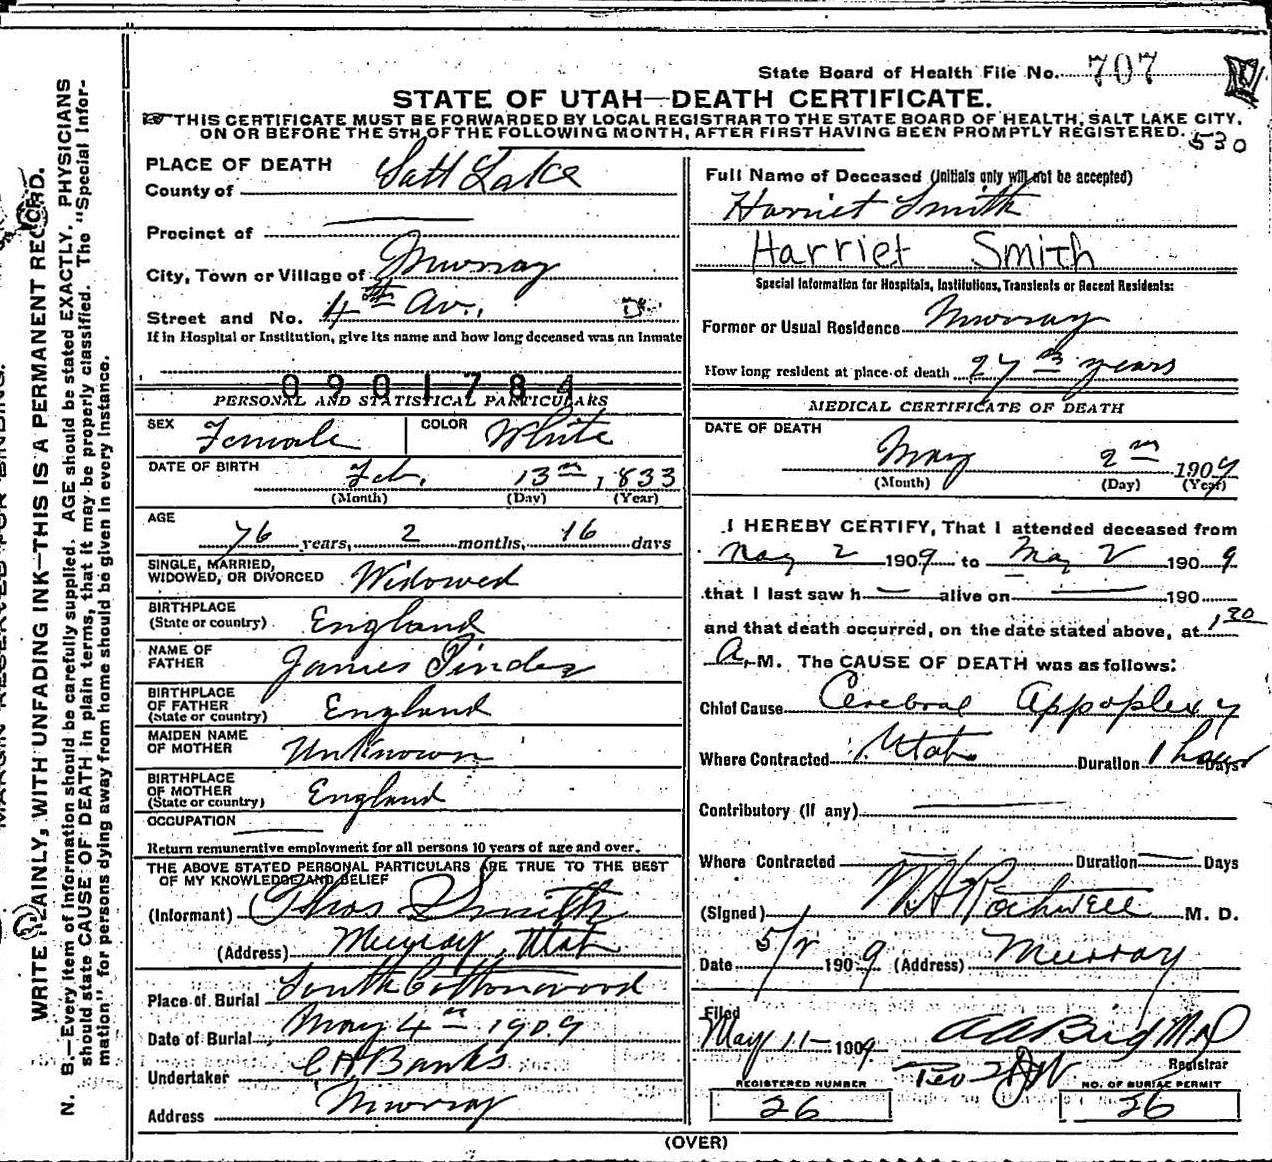 State Board of Health File No. 707
STATE OF UTAH—DEATH CERTIFICATE.
THIS CERTIFICATE MUST BE FORWARDED BY LOCAL REGISTRAR TO THE STATE BOARD OF HEALTH, SALT LAKE CITY,
ON OR BEFORE THE 5TH OF THE FOLLOWING MONTH, AFTER FIRST HAVING BEEN PROMPTLY REGISTERED.
530
PLACE OF DEATH
County of Salt Lake
Precinct of
City, Town or Village of Murray
Street and No. 4th Av.
If in Hospital or Institution, give its name and how long deceased was an Inmate
0901784
PERSONAL AND STATISTICAL PARTICULARS
SEX Female COLOR White
DATE OF BIRTH Feb. 13th 1833
(Month) (Day) (Year)
AGE 76 years, 2 months, 16 days
SINGLE, MARRIED,
WIDOWED, OR DIVORCED Widowed
BIRTHPLACE
(State or country) England
NAME OF
FATHER James Pinder
BIRTHPLACE
OF FATHER
(State or country) England
MAIDEN NAME
OF MOTHER Unknown
BIRTHPLACE
OF MOTHER
(State or country) England
OCCUPATION
Return remunerative employment for all persons 10 years of age and over.
THE ABOVE STATED PERSONAL PARTICULARS ARE TRUE TO THE BEST
OF MY KNOWLEDGE AND BELIEF
(Informant) Thos Smith
(Address) Murray, Utah
Place of Burial South Cottonwood
Date of Burial May 4th 1909
Undertaker C H Banks
Address Murray
Full Name of Deceased (Initials only will not be accepted)
Harriet Smith
Harriet Smith
Special Information for Hospitals, Institutions, Transients or Recent Residents:
Former or Usual Residence Murray
How long resident at place of death 27 years
MEDICAL CERTIFICATE OF DEATH
DATE OF DEATH
May 2nd 1909
(Month) (Day) (Year)
I HEREBY CERTIFY, That I attended deceased from
May 2 1909 to May 2 1909
that I last saw h alive on 190
and that death occurred, on the date stated above, at 1 30
A. M. The CAUSE OF DEATH was as follows:
Chief Cause Cerebral Appoplexy
Where Contracted Utah Duration 1 hour Days
Contributory (if any)
Where Contracted Duration Days
(Signed) W H Rothwell M. D.
Date 5/2 1909 (Address) Murray
Filed
May 11 1909 A A Bird M D
Registrar
REGISTERED NUMBER
26
NO. OF BURIAL PERMIT
26
(OVER)
MARGIN RESERVED FOR BINDING.
WRITE PLAINLY, WITH UNFADING INK—THIS IS A PERMANENT RECORD.
N. B.—Every item of information should be carefully supplied. AGE should be stated EXACTLY. PHYSICIANS
should state CAUSE OF DEATH in plain terms, that it may be properly classified. The "Special Infor-
mation" for persons dying away from home should be given in every instance.